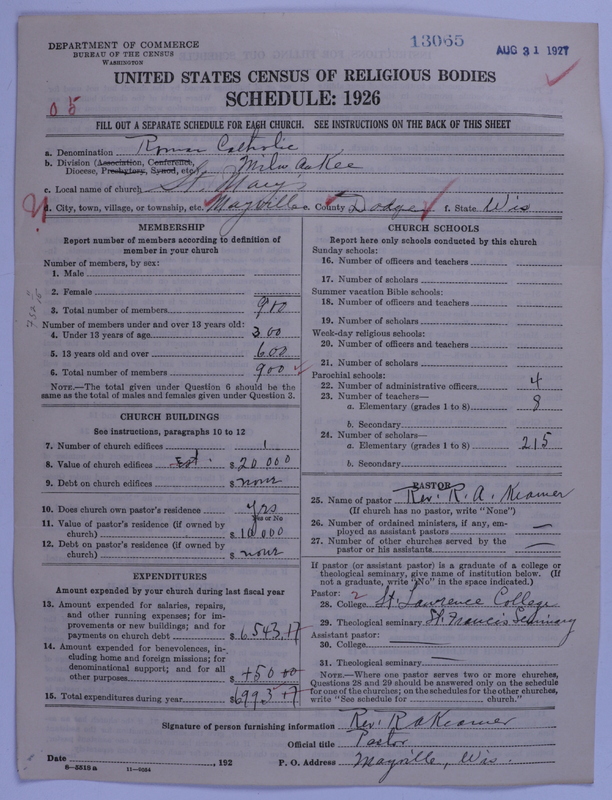 DEPARTMENT OF COMMERCE
BUREAU OF THE CENSUS
WASHINGTON
13065
AUG 31 1927
UNITED STATES CENSUS OF RELIGIOUS BODIES
SCHEDULE: 1926
0 5
FILL OUT A SEPARATE SCHEDULE FOR EACH CHURCH. SEE INSTRUCTIONS ON THE BACK OF THIS SHEET
a. Denomination Roman Catholic
b. Division (Association, Conference, Diocese, Presbytery, Synod, etc.) Milwaukee
c. Local name of church St. Mary's
d. City, town, village, or township, etc. Mayville e. County Dodge f. State Wis
MEMBERSHIP
Report number of members according to definition of
member in your church
Number of members, by sex:
1. Male
2. Female
3. Total number of members 900
Number of members under and over 13 years old:
4. Under 13 years of age 300
5. 13 years old and over 600
6. Total number of members 900
NOTE.—The total given under Question 6 should be the
same as the total of males and females given under Question 3.
CHURCH BUILDINGS
See instructions, paragraphs 10 to 12
7. Number of church edifices 1
8. Value of church edifices Est. $ 20 000
9. Debt on church edifices $ none
10. Does church own pastor's residence yes
Yes or No
11. Value of pastor's residence (if owned by
church) $ 10 000
12. Debt on pastor's residence (if owned by
church) $ none
EXPENDITURES
Amount expended by your church during last fiscal year
13. Amount expended for salaries, repairs,
and other running expenses; for im-
provements or new buildings; and for
payments on church debt $ 6,543.17
14. Amount expended for benevolences, in-
cluding home and foreign missions; for
denominational support; and for all
other purposes $ 450 00
15. Total expenditures during year $ 6993 17
CHURCH SCHOOLS
Report here only schools conducted by this church
Sunday schools:
16. Number of officers and teachers
17. Number of scholars
Summer vacation Bible schools:
18. Number of officers and teachers
19. Number of scholars
Week-day religious schools:
20. Number of officers and teachers
21. Number of scholars
Parochial schools:
22. Number of administrative officers 4
23. Number of teachers—
a. Elementary (grades 1 to 8) 8
b. Secondary
24. Number of scholars—
a. Elementary (grades 1 to 8) 215
b. Secondary
PASTOR
25. Name of pastor Rev. R. A. Kramer
(If church has no pastor, write "None")
26. Number of ordained ministers, if any, em-
ployed as assistant pastors —
27. Number of other churches served by the
pastor or his assistants —
If pastor (or assistant pastor) is a graduate of a college or
theological seminary, give name of institution below. (If
not a graduate, write "No" in the space indicated.)
Pastor: 2
28. College St. Lawrence College
29. Theological seminary St. Francis Seminary
Assistant pastor:
30. College
31. Theological seminary —
NOTE.—Where one pastor serves two or more churches,
Questions 28 and 29 should be answered only on the schedule
for one of the churches; on the schedules for the other churches,
write "See schedule for church."
Signature of person furnishing information Rev. R A Kramer
Official title Pastor
Date , 192 P. O. Address Mayville, Wis.
8—5518a 11—9084